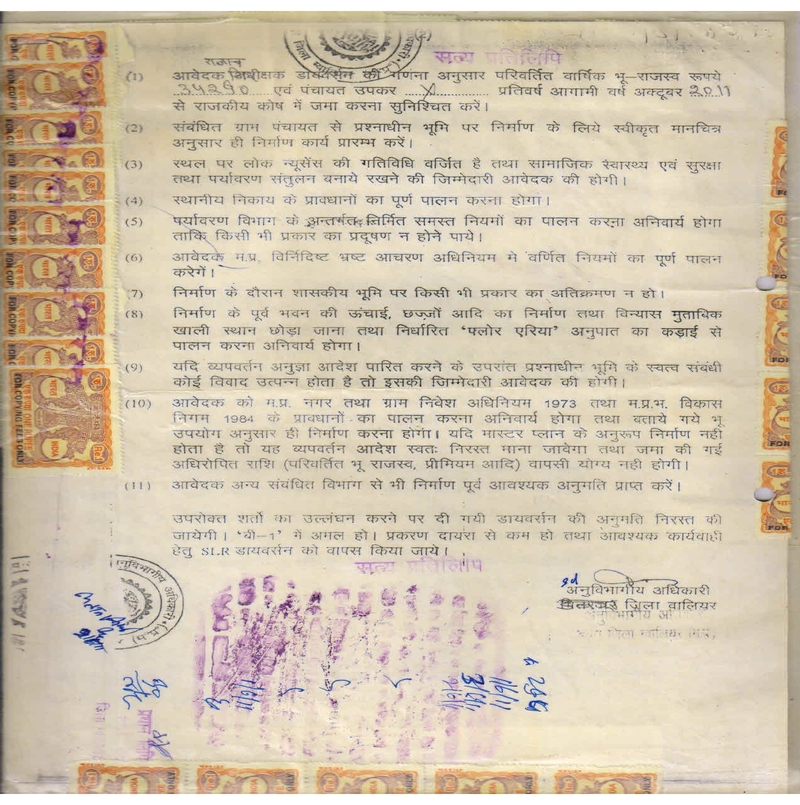 सत्य प्रतिलिपि
राजस्व
(1) आवेदक निरीक्षक डायवर्सन की गणना अनुसार परिवर्तित वार्षिक भू–राजस्व रूपये
34290 एवं पंचायत उपकर ...X... प्रतिवर्ष आगामी वर्ष अक्टूबर 2011
से राजकीय कोष में जमा करना सुनिश्चित करें।
(2) संबंधित ग्राम पंचायत से प्रश्नाधीन भूमि पर निर्माण के लिये स्वीकृत मानचित्र
अनुसार ही निर्माण कार्य प्रारम्भ करें।
(3) स्थल पर लोक न्यूसेंस की गतिविधि वर्जित है तथा सामाजिक स्वास्थ्य एवं सुरक्षा
तथा पर्यावरण संतुलन बनाये रखने की जिम्मेदारी आवेदक की होगी।
(4) स्थानीय निकाय के प्रावधानों का पूर्ण पालन करना होगा।
(5) पर्यावरण विभाग के अन्तर्गत निर्मित समस्त नियमों का पालन करना अनिवार्य होगा
ताकि किसी भी प्रकार का प्रदूषण न होने पाये।
(6) आवेदक म.प्र. विनिर्दिष्ट भ्रष्ट आचरण अधिनियम मे वर्णित नियमों का पूर्ण पालन
करेगें।
(7) निर्माण के दौरान शासकीय भूमि पर किसी भी प्रकार का अतिक्रमण न हो।
(8) निर्माण के पूर्व भवन की ऊंचाई, छज्जों आदि का निर्माण तथा विन्यास मुताबिक
खाली स्थान छोड़ा जाना तथा निर्धारित 'फ्लोर एरिया' अनुपात का कड़ाई से
पालन करना अनिवार्य होगा।
(9) यदि व्यपवर्तन अनुज्ञा आदेश पारित करने के उपरांत प्रश्नाधीन भूमि के स्वत्व संबंधी
कोई विवाद उत्पन्न होता है तो इसकी जिम्मेदारी आवेदक की होगी।
(10) आवेदक को म.प्र. नगर तथा ग्राम निवेश अधिनियम 1973 तथा म.प्र.भ. विकास
निगम 1984 के प्रावधानों का पालन करना अनिवार्य होगा तथा बताये गये भू
उपयोग अनुसार ही निर्माण करना होगा। यदि मास्टर प्लान के अनुरूप निर्माण नही
होता है तो यह व्यपवर्तन आदेश स्वतः निरस्त माना जावेगा तथा जमा की गई
अधिरोपित राशि (परिवर्तित भू राजस्व, प्रीमियम आदि) वापसी योग्य नही होगी।
(11) आवेदक अन्य संबंधित विभाग से भी निर्माण पूर्व आवश्यक अनुमति प्राप्त करें।
उपरोक्त शर्तो का उल्लंघन करने पर दी गयी डायवर्सन की अनुमति निरस्त की
जायेगी। 'बी–1' में अमल हो। प्रकरण दायरा से कम हो तथा आवश्यक कार्यवाही
हेतु SLR डायवर्सन को वापस किया जाये।
सत्य प्रतिलिपि
sd
अनुविभागीय अधिकारी
जिला ग्वालियर